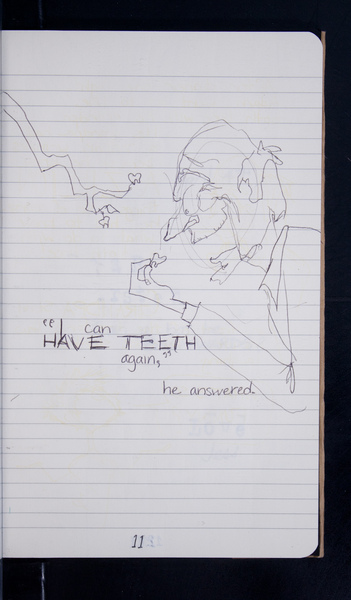 "I can
HAVE TEETH
again,"
he answered.
11